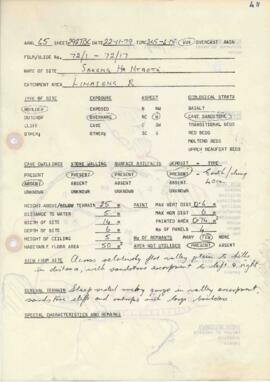 ARAL 65 SHEET 2927DC DATE 22-11-79 TIME SUN OVERCAST RAIN
FILM/SLIDE No. 72/1 - 72/17
NAME OF SITE
CATCHMENT AREA
TYPE OF SITE EXPOSURE ASPECT GEOLOGICAL STRATA
BOULDER EXPOSED N NW BASALT
OUTCROP OVERHANG NE W CAVE SANDSTONE
CLIFF CAVE E SW TRANSITIONAL BEDS
OTHER: OTHER: SE S RED BEDS
MOLTENO BEDS
UPPER BEAUFORT BEDS
CAVE DWELLINGS STONE WALLING SURFACE ARTIFACTS DEPOSIT - TYPE
PRESENT PRESENT PRESENT PRESENT Earth/dung
ABSENT ABSENT ABSENT ABSENT
UNKNOWN UNKNOWN UNKNOWN
HEIGHT ABOVE/BELOW TERRAIN 25 m PAINT MAX VERT DIST m
DISTANCE TO WATER 5 m MAX HOR DIST m
WIDTH OF SITE 14 m PAINTED AREA m
DEPTH OF SITE 6 m No OF PANELS 4
HEIGHT OF CEILING 5 m No OF REMNANTS MANY FEW NONE
HABITABLE FLOOR AREA 50 m² AREA NOT UTILISED PRESENT ABSENT
VIEW FROM SITE Across relatively flat valley plain to hills
in distance, with sandstone escarpment to left & right
GENERAL TERRAIN Steep sided rocky gorge in valley escarpment,
sandstone cliffs and outcrops with large boulders
SPECIAL CHARACTERISTICS AND REMARKS